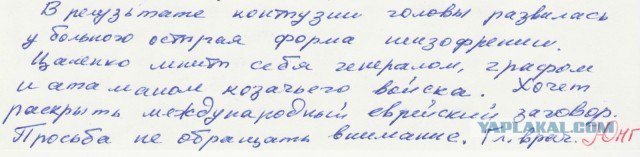 В результате контузии головы развилась
у больного острая форма шизофрении.
Цаленко мнит себя генералом, графом
и атаманом козачьего войска. Хочет
раскрыть международный еврейский заговор.
Просьба не обращать внимание. Гл. врач. Юнг
YAPLAKAL.COM